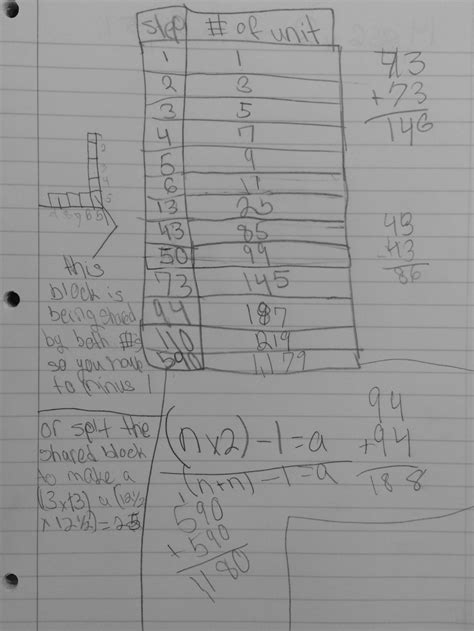 step # of unit
1 1
2 3
3 5
4 7
5 9
6 11
13 25
43 85
50 99
73 145
94 187
110 219
590 1179
73
+73
146
43
+43
86
94
+94
188
this
block is
being shared
by both #s
so you have
to minus 1
or split the
shared block
to make a
(13x13) a (12½
x 12½)=25
(n x2) -1 = a
(n+n) -1 = a
590
+590
1180